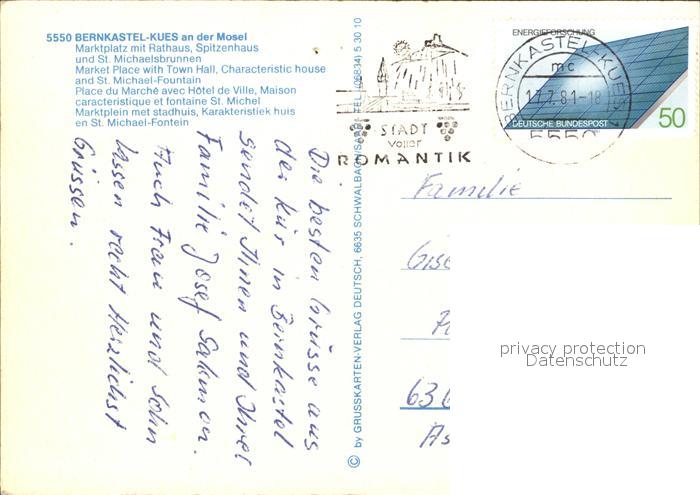 5550 BERNKASTEL-KUES an der Mosel
Marktplatz mit Rathaus, Spitzenhaus
und St. Michaelsbrunnen
Market Place with Town Hall, Characteristic house
and St. Michael-Fountain
Place du Marché avec Hôtel de Ville, Maison
caracteristique et fontaine St. Michel
Marktplein met stadhuis, Karakteristiek huis
en St. Michael-Fontein
Die besten Grüsse aus
der Kur in Bernkastel
sendet Ihnen und Ihrer
Familie Josef
Auch Frau und Sohn
lassen recht Herzlichst
Grüssen.
© by GRUSSKARTEN-VERLAG DEUTSCH, 6635 SCHWALBACH/SAAR, TEL. (06834) 5 30 10
STADT
voller
ROMANTIK
BERNKASTEL-KUES
mc
17.7.81-18
5550
ENERGIEFORSCHUNG
DEUTSCHE BUNDESPOST
50
Familie
privacy protection
Datenschutz